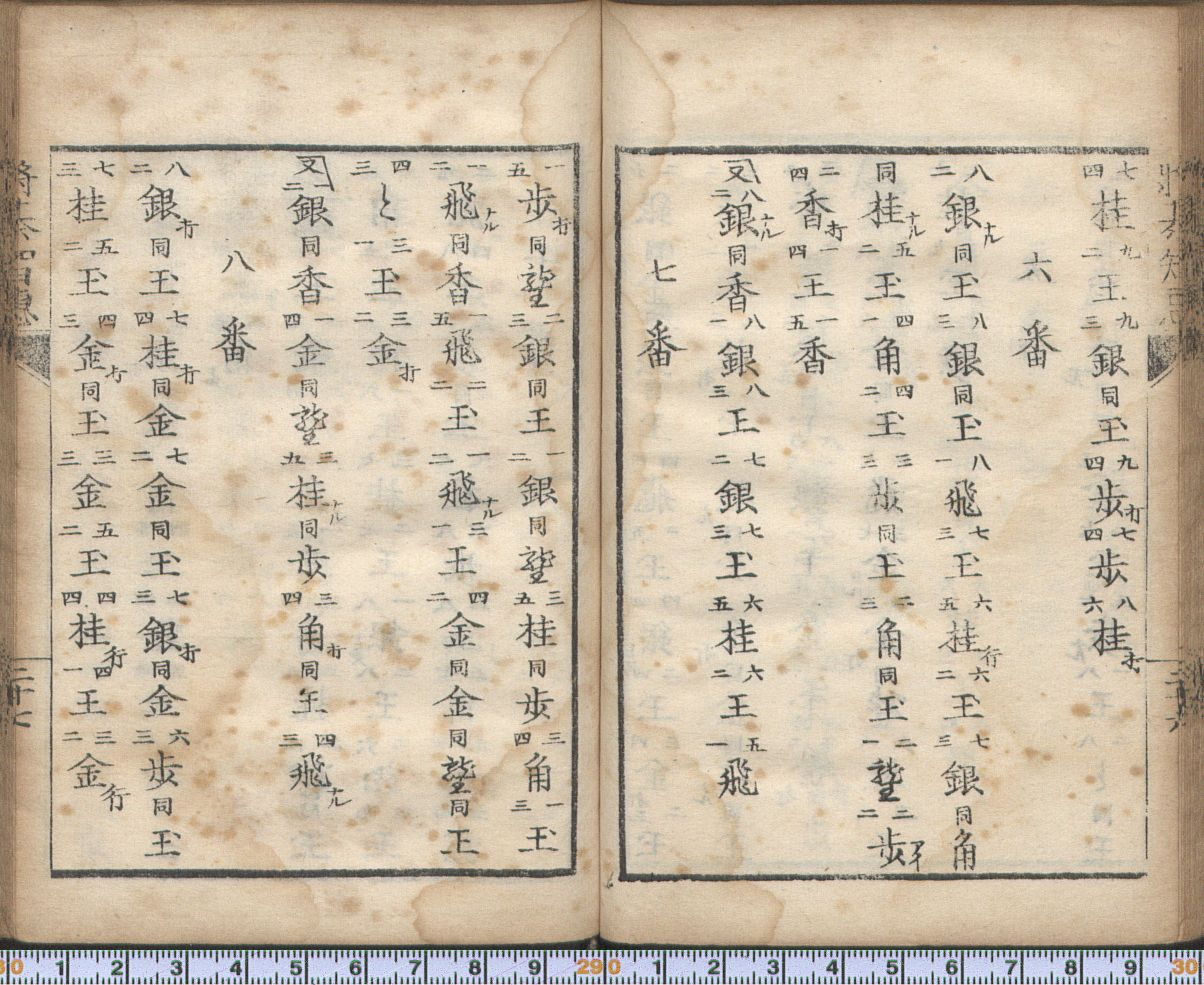 七四桂 九二王 九三銀 同玉 九四歩打 七四歩 八六桂打
六番
八二銀ナル 同玉 八三銀 同玉 八一飛 七三玉 六五桂行 六二玉 七三銀 同角
同桂ナル 五二玉 四一角 四二玉 三三歩 同玉 二三角 同玉 二一龍 二二歩アイ
二四香打 一四王 一五香
又八二銀ナル 同香 八一銀 八三玉 七二銀 七三玉 六五桂 六二王 五一飛
七番
一五歩打 同龍 二三銀 同王 一二銀 同龍 三五桂 同歩 三四角 一三玉
一二飛ナル 同香 一五飛 二二玉 一二飛ナル 三一王 四二金 同金 同龍 同王
四三と 三一王 三二金打
又一二銀 同香 一四金 同龍 三五桂ナル 同歩 三四角打 同王 四三飛ナル
八番
八二銀打 同玉 七四桂打 同金 七二金 同玉 七三銀打 同金 六三歩 同玉
七三桂 五二王 四三金打 同王 三三金 五二王 四四桂行 四一王 三二金行
二十七
30 1 2 3 4 5 6 7 8 9 290 1 2 3 4 5 6 7 8 9 30